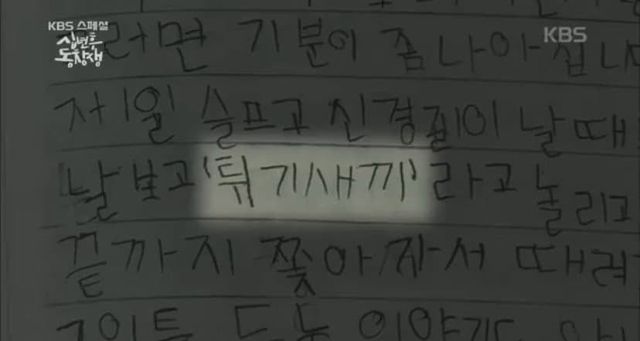 KBS 스페셜
십년후
동창생
KBS
그러면 기분이 좀 나아집니
제일 슬프고 신경질이 날때
날 보고 '튀기새끼' 라고 놀리고
끝까지 쫓아가서 때려
이야기